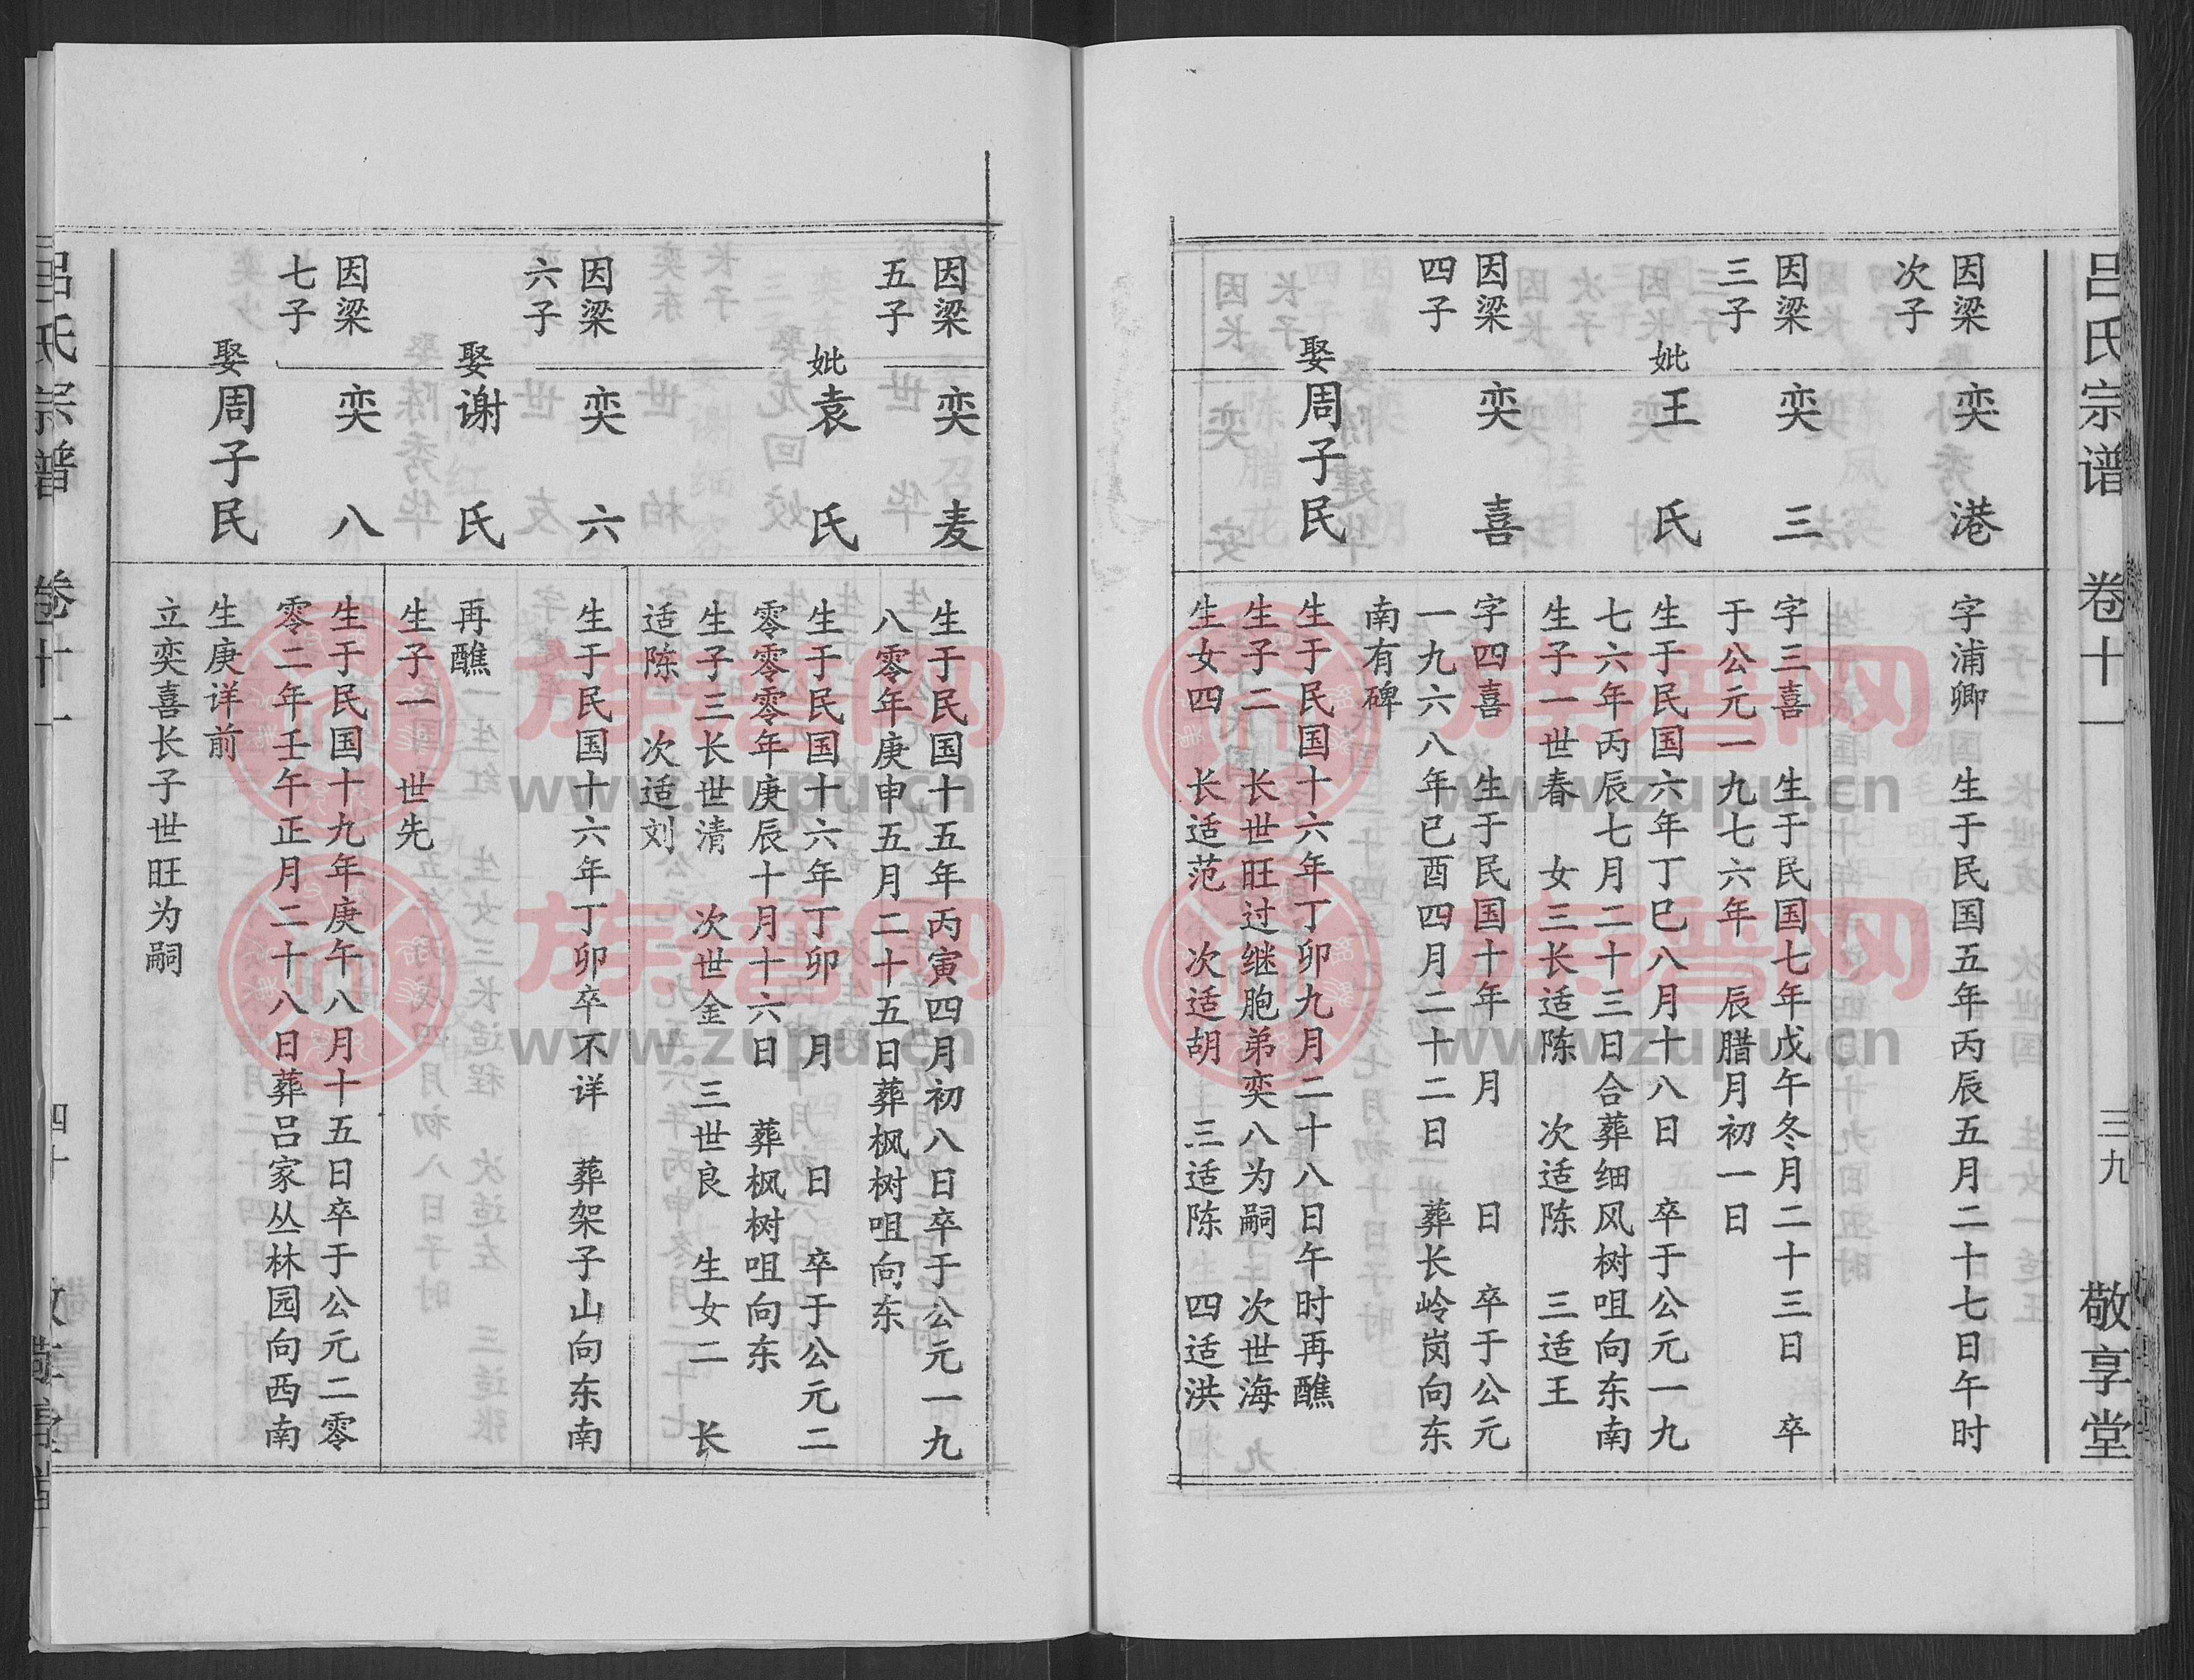 吕氏宗谱 卷十一 三九 敬享堂
因梁
次子
奕港
字浦卿 生于民国五年丙辰五月二十七日午时
因梁
三子
奕三
字三喜 生于民国七年戊午冬月二十三日 卒
于公元一九七六年 辰腊月初一日
妣王氏
生于民国六年丁巳八月十八日 卒于公元一九
七六年丙辰七月二十三日合葬细风树咀向东南
生子一世春 女三长适陈 次适陈 三适王
因梁
四子
奕喜
字四喜 生于民国十年 月 日 卒于公元
一九六八年已酉四月二十二日 葬长岭岗向东
南有碑
娶周子民
生于民国十六年丁卯九月二十八日午时再醮
生子二 长世旺过继胞弟奕八为嗣 次世海
生女四 长适范 次适胡 三适陈 四适洪
因梁
五子
奕麦
生于民国十五年丙寅四月初八日卒于公元一九
八零年庚申五月二十五日葬枫树咀向东
妣袁氏
生于民国十六年丁卯 月 日 卒于公元二
零零零年庚辰十月十六日 葬枫树咀向东
生子三长世清 次世金 三世良 生女二 长
适陈 次适刘
因梁
六子
奕六
生于民国十六年丁卯卒不详 葬架子山向东南
娶谢氏
再醮
生子一 世先
因梁
七子
奕八
生于民国十九年庚午八月十五日卒于公元二零
零二年壬午正月二十八日葬吕家丛林园向西南
娶周子民
生庚详前
立奕喜长子世旺为嗣
吕氏宗谱 卷十一 四十
族谱网
www.zupu.cn
族谱网
www.zupu.cn
族谱网
www.zupu.cn
族谱网
www.zupu.cn